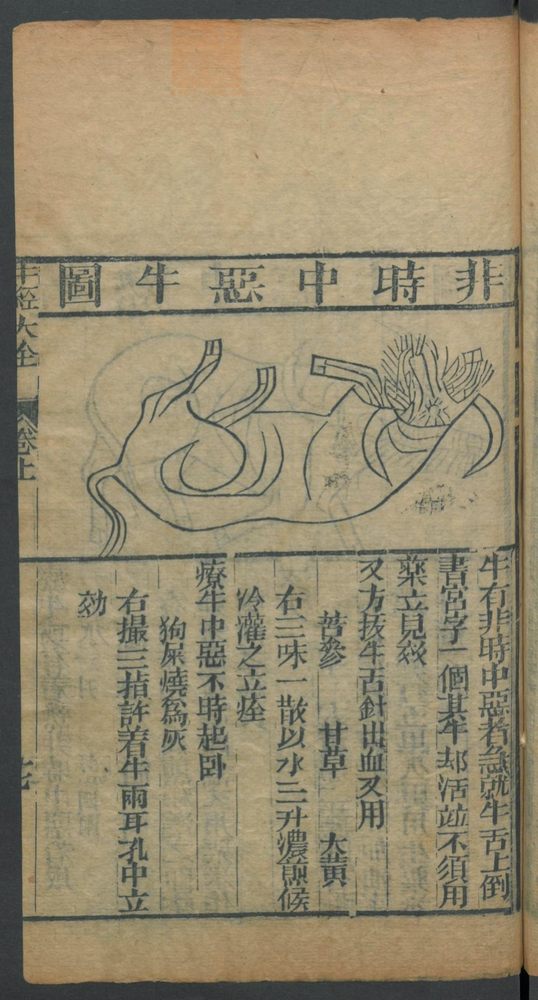 非時中惡牛圖
牛有非時中惡者急就牛舌上倒
書官字一個其牛却活並不須用
藥立見效
又方抜牛舌針出血又用
苦參 甘草 大黃
右三味一散以水三升濃煎候
冷灌之立痊
療牛中惡不時起卧
狗屎燒爲灰
右撮三指許着牛兩耳孔中立
効
牛經大全 卷上